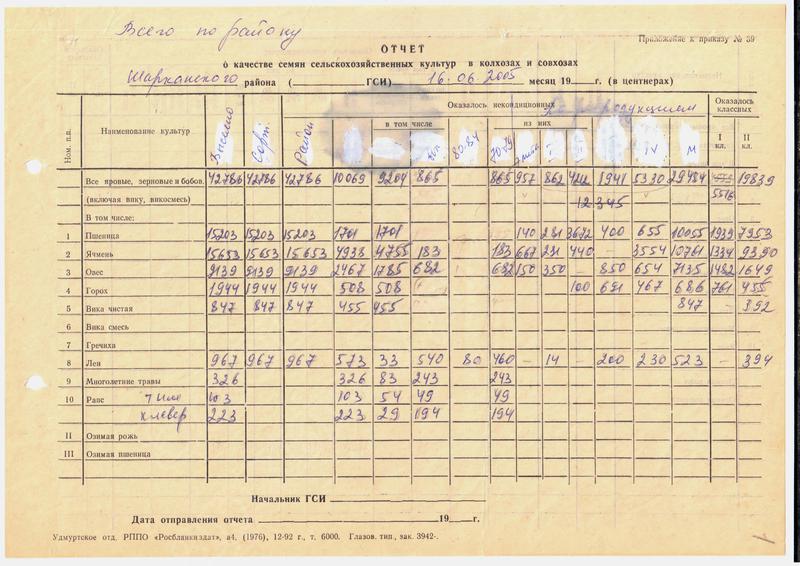 Всего по району
Приложение к приказу № 39
ОТЧЕТ
о качестве семян сельскохозяйственных культур в колхозах и совхозах
Шарканского района ( ГСИ) 16.06.2005 месяц 19 г. (в центнерах)
Ном. п.п. Наименование культур Высеяно Сорт. Район Оказалось некондиционных Оказалось классных
в том числе из них
80-84 70-79 IV М I кл. II кл.
Все яровые, зерновые и бобов. 42786 42786 42786 10069 9204 865 865 957 862 1941 5330 29484 19839
(включая вику, викосмесь) 12345 5516
В том числе:
1 Пшеница 15203 15203 15203 1701 1701 140 231 3672 400 655 10055 1939 7953
2 Ячмень 15653 15653 15653 4938 4755 183 183 667 231 440 — 3554 10761 1334 9390
3 Овес 9139 9139 9139 2467 1785 682 682 150 350 — 850 654 7135 1482 1649
4 Горох 1944 1944 1944 508 508 100 691 467 686 761 455
5 Вика чистая 847 847 847 455 455 847 — 392
6 Вика смесь
7 Гречиха
8 Лен 967 967 967 573 33 540 80 460 — 14 — 200 230 523 — 394
9 Многолетние травы 326 326 83 243 243
10 Рапс 103 103 54 49 49
клевер 223 223 29 194 194
II Озимая рожь
III Озимая пшеница
Начальник ГСИ
Дата отправления отчета 19 г.
Удмуртское отд. РППО «Росбланкиздат», а4, (1976), 12-92 г., т. 6000. Глазов. тип., зак. 3942-.